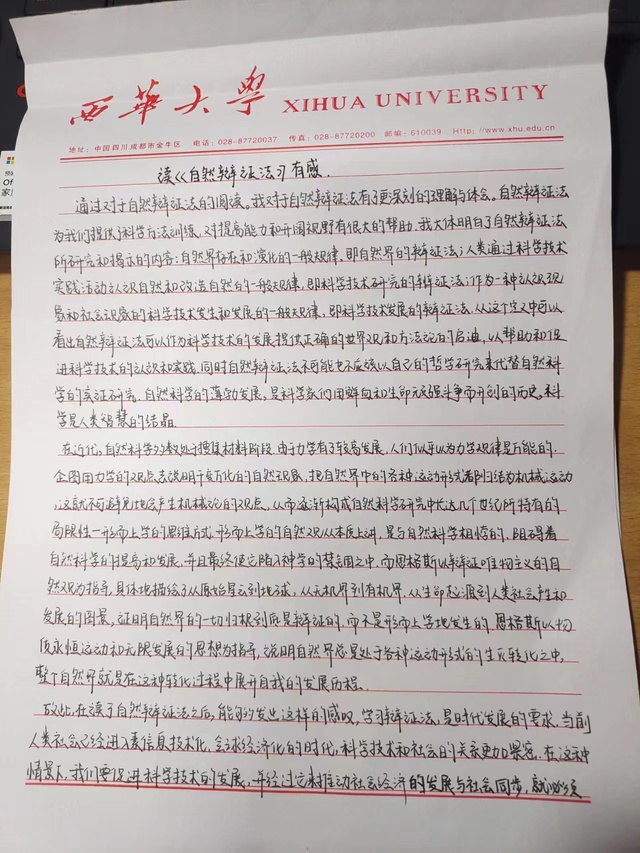 西华大学 XIHUA UNIVERSITY
地址：中国四川成都市金牛区 电话：028-87720037 传真：028-87720200 邮编：610039 Http：//www.xhu.edu.cn
读《自然辩证法》有感.
通过对于自然辩证法的阅读。我对于自然辩证法有了更深刻的理解与体会。自然辩证法
为我们提供了科学方法训练、对提高能力和开阔视野有很大的帮助.我大体明白了自然辩证法
所研究和揭示的内容：自然界存在和演化的一般规律，即自然界的辩证法；人类通过科学技术
实践活动认识自然和改造自然的一般规律，即科学技术研究的辩证法；作为一种认识现
象和社会现象的科学技术发生和发展的一般规律，即科学技术发展的辩证法.从这个定义中可以
看出自然辩证法可以作为科学技术的发展提供正确的世界观和方法论的启迪，以帮助和促
进科学技术的认识和实践.同时自然辩证法不可能也不应该以自己的哲学研究来代替自然科
学的实证研究。自然科学的蓬勃发展，是科学家们用鲜血和生命无顽强斗争而开创的历史。科
学是人类智慧的结晶.
在近代，自然科学多数处于搜集材料阶段.由于力学有了较高发展，人们似乎以为力学规律是万能的.
企图用力学的观点去说明千变万化的自然现象，把自然界中的各种运动形式都归结为机械运动
，这就不可避免地会产生机械论的观点、从而逐渐构成自然科学研究中长达几个世纪所特有的
局限性—形而上学的思维方式.形而上学的自然观从本质上讲，是与自然科学相悖的.阻碍着
自然科学的提高和发展.并且最终使它陷入神学的禁锢之中.而恩格斯以辩证唯物主义的自
然观为指导，具体地描绘了从原始星云到地球，从无机界到有机界，从生命起源到人类社会产生和
发展的图景，证明自然界的一切归根到底是辩证的.而不是形而上学地发生的.恩格斯以物
质永恒运动和无限发展的思想为指导，说明自然界总是处于各种运动形式的生灭转化之中，
整个自然界就是在这种转化过程中展开自我的发展历程.
故此，在读了自然辩证法之后，能够发出这样的感叹，学习辩证法，是时代发展的需求.当前
人类社会已经进入素信息技术化，全球经济化的时代，科学技术和社会的关系更加紧密.在这种
情景下，我们要促进科学技术的发展，并经过它来推动社会经济的发展与社会同步，就必须